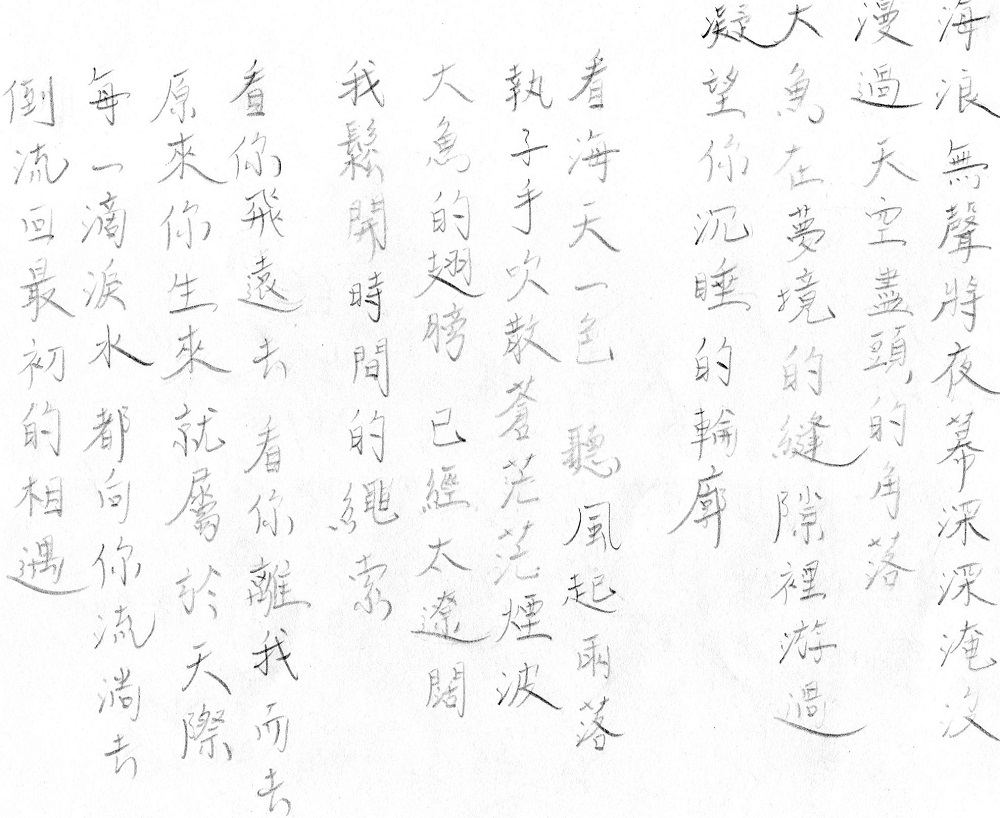 海浪無聲將夜幕深深淹沒
漫過天空盡頭的角落
大魚在夢境的縫隙裡游過
凝望你沉睡的輪廓
看海天一色 聽風起雨落
執子手吹散蒼茫茫煙波
大魚的翅膀 已經太遼闊
我鬆開時間的繩索
看你飛遠去 看你離我而去
原來你生來就屬於天際
每一滴淚水 都向你流淌去
倒流回最初的相遇